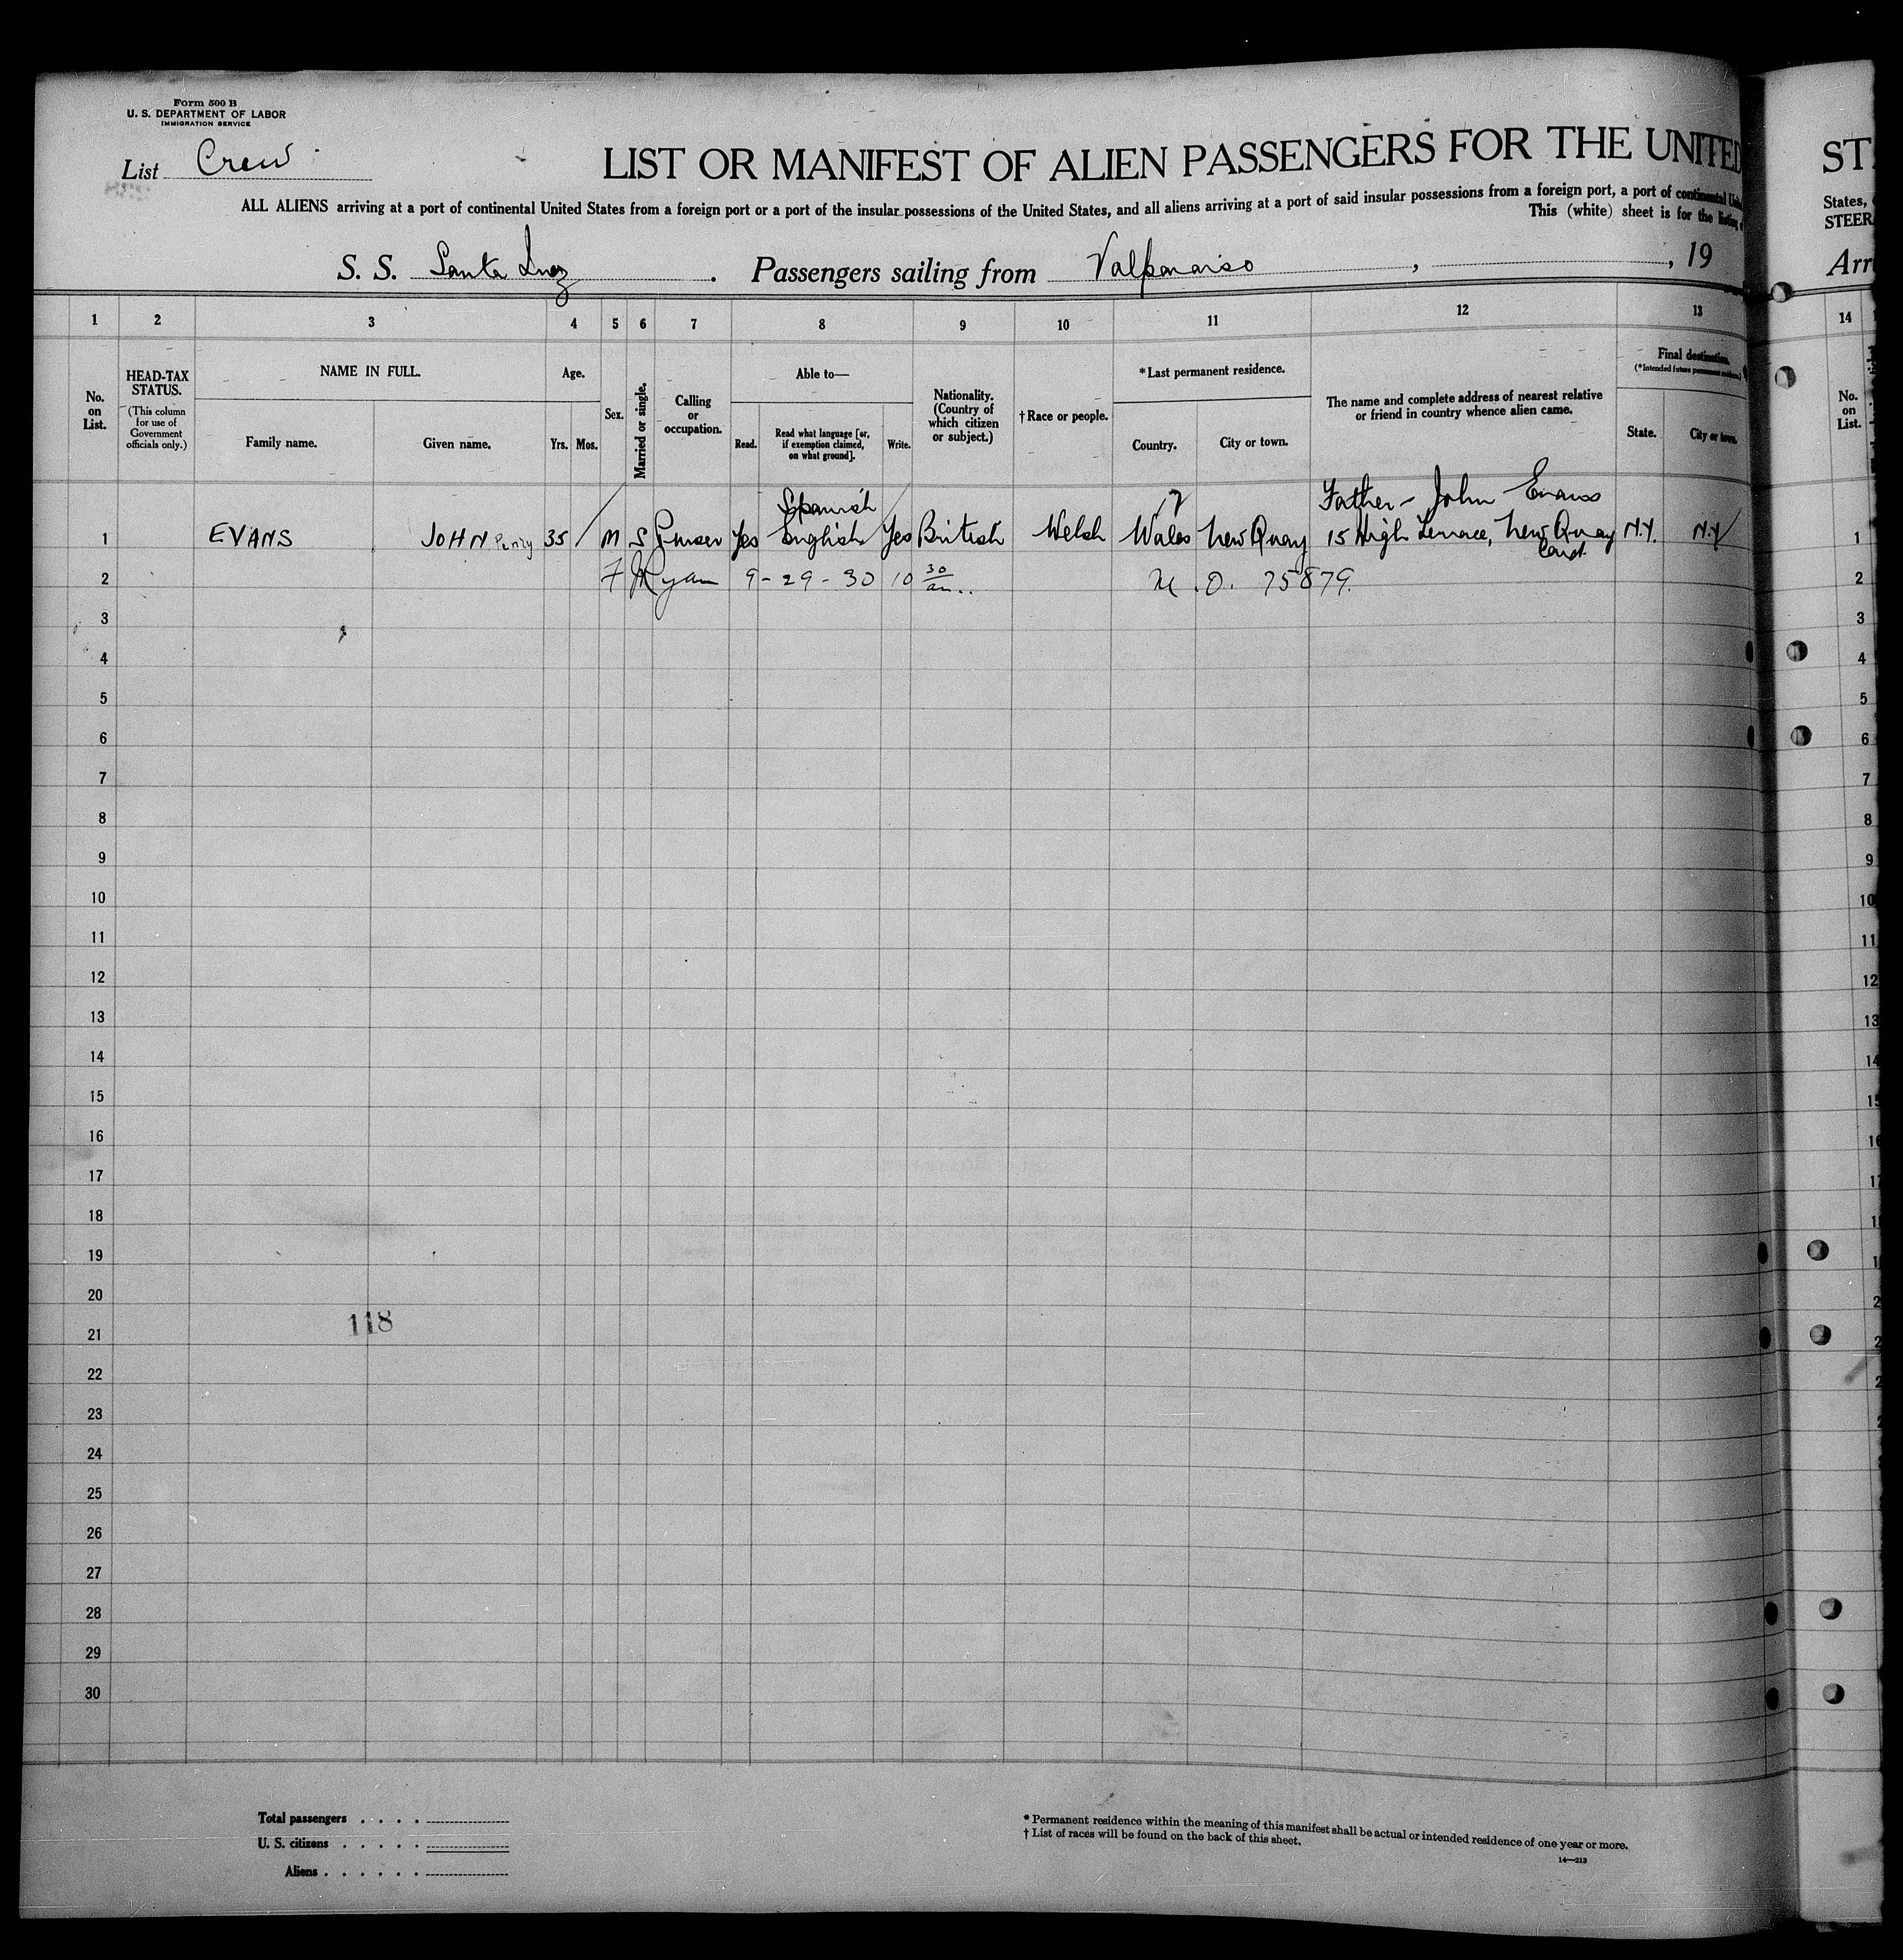 Form 500 B
U. S. DEPARTMENT OF LABOR
IMMIGRATION SERVICE
List Crew
LIST OR MANIFEST OF ALIEN PASSENGERS FOR THE UNITED
ALL ALIENS arriving at a port of continental United States from a foreign port or a port of the insular possessions of the United States, and all aliens arriving at a port of said insular possessions from a foreign port, a port of continental
This (white) sheet is for the listing
S. S. Santa Inez . Passengers sailing from Valparaiso , , 19
1 2 3 4 5 6 7 8 9 10 11 12 13
No. on List.
HEAD-TAX STATUS.
(This column for use of Government officials only.)
NAME IN FULL.
Family name. Given name.
Age.
Yrs. Mos.
Sex.
Married or single.
Calling or occupation.
Able to—
Read. Read what language [or, if exemption claimed, on what ground]. Write.
Nationality. (Country of which citizen or subject.)
† Race or people.
* Last permanent residence.
Country. City or town.
The name and complete address of nearest relative or friend in country whence alien came.
Final destination.
(*Intended future permanent residence.)
State. City or town.
Spanish Father - John Evans
1 EVANS JOHN 35 M S Yes English Yes British Welsh Wales New Quay 15 High Terrace, New Quay N.Y. N.Y
Card.
2 F Ryan 9-29-30 10 30 am.. 75879.
3
4
5
6
7
8
9
10
11
12
13
14
15
16
17
18
19
20
118
21
22
23
24
25
26
27
28
29
30
Total passengers . . . .
U. S. citizens . . . . .
Aliens . . . . . .
* Permanent residence within the meaning of this manifest shall be actual or intended residence of one year or more.
† List of races will be found on the back of this sheet.
14—213
States,
14
No. on List.
1
2
3
4
5
6
7
8
9
10
11
12
13
14